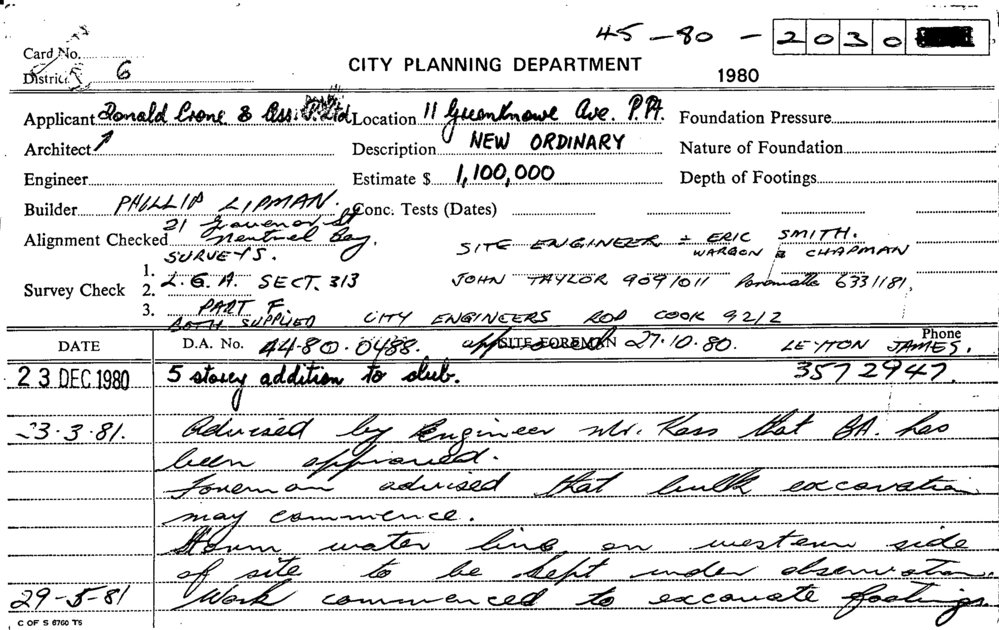 45-80 - 2030
Card No.
District 6
CITY PLANNING DEPARTMENT
1980
Applicant Donald Crone & Ass. P. Ltd Location 11 Greenknowe Ave. P.Pt. Foundation Pressure
Architect Description NEW ORDINARY Nature of Foundation
Engineer Estimate $ 1,100,000 Depth of Footings
Builder PHILLIP LIPMAN. Conc. Tests (Dates)
21 Grosvenor St
Alignment Checked Neutral Bay. SITE ENGINEER - ERIC SMITH.
SURVEYS. WARGON & CHAPMAN
Survey Check 1. L.G.A. SECT. 313 JOHN TAYLOR 9091011 Parramatta 6331181,
2.
3. PART F.
BOTH SUPPLIED CITY ENGINEERS ROD COOK 9212
DATE D.A. No. 44.80.0488. approved SITE FOREMAN 27.10.80. LEYTON JAMES. Phone
23 DEC 1980 5 storey addition to club. 3572947.
23.3.81. Advised by Engineer Mr. Kass that BA. has
been approved.
Foreman advised that bulk excavation
may commence.
Storm water line on western side
of site to be kept under observation.
29-5-81 Work commenced to excavate footings.
C OF S 6760 T5